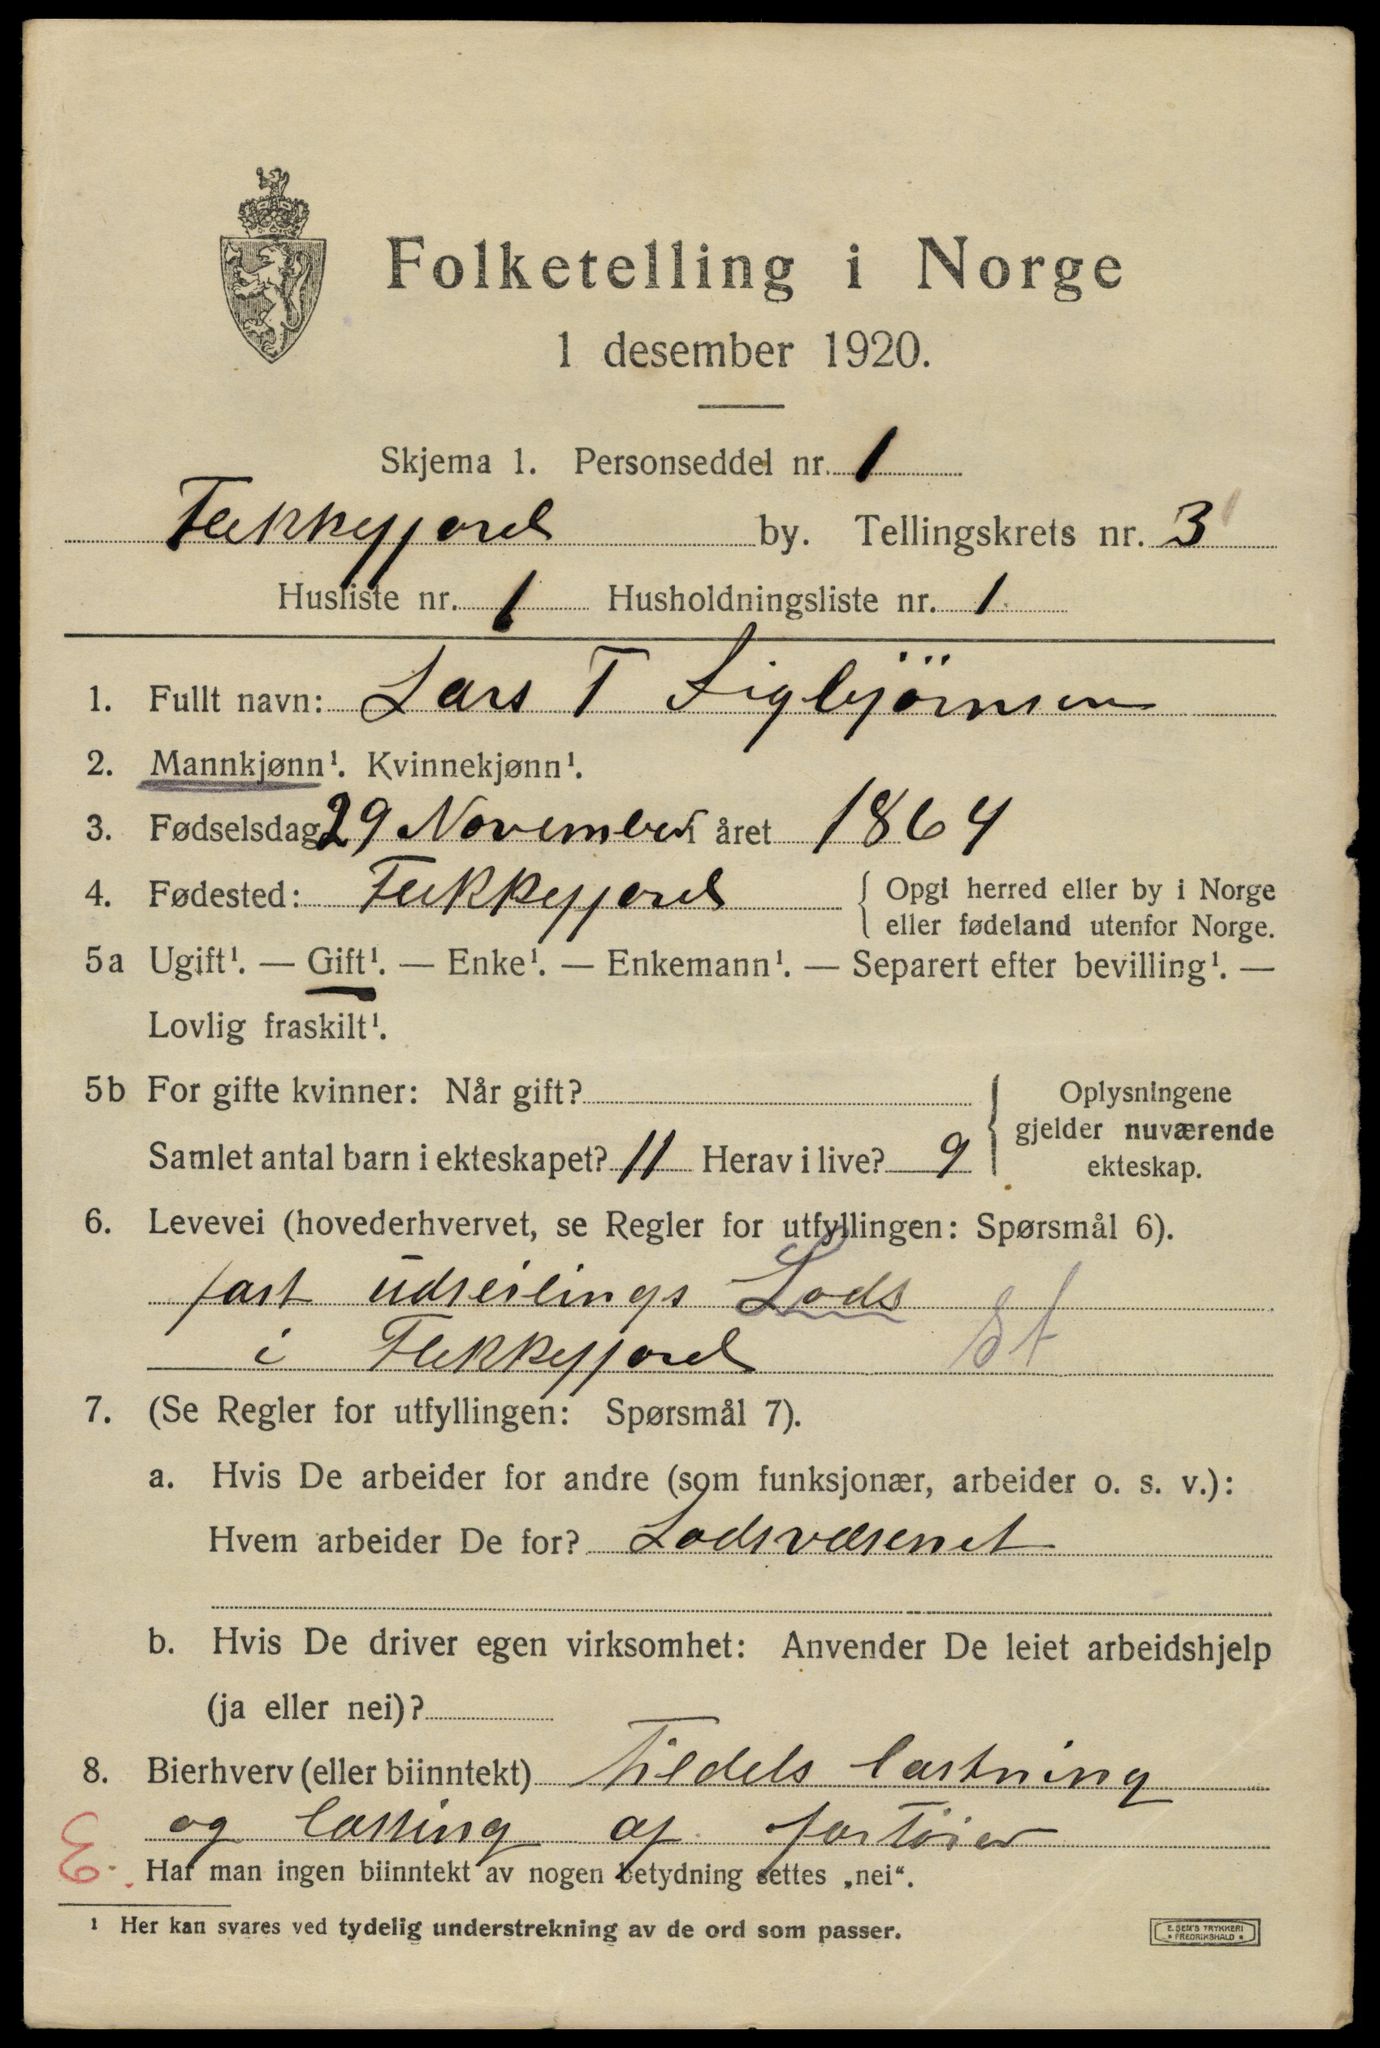 Folketelling i Norge
1 desember 1920.
Skjema 1. Personseddel nr. 1
Flekkefjord by. Tellingskrets nr. 3
Husliste nr. 1 Husholdningsliste nr. 1.
1. Fullt navn: Lars T Sigbjörnsen
2. Mannkjønn¹. Kvinnekjønn¹.
3. Fødselsdag 29 November i året 1864
4. Fødested: Flekkefjord { Opgi herred eller by i Norge
eller fødeland utenfor Norge.
5a Ugift¹. — Gift¹. — Enke¹. — Enkemann¹. — Separert efter bevilling¹. —
Lovlig fraskilt¹.
5b For gifte kvinner: Når gift?
Samlet antal barn i ekteskapet? 11 Herav i live? 9
Oplysningene
gjelder nuværende
ekteskap.
6. Levevei (hovederhvervet, se Regler for utfyllingen: Spørsmål 6).
fast udseilings Lods
i Flekkefjord St
7. (Se Regler for utfyllingen: Spørsmål 7).
a. Hvis De arbeider for andre (som funksjonær, arbeider o. s. v.):
Hvem arbeider De for? Lodsvæsenet
b. Hvis De driver egen virksomhet: Anvender De leiet arbeidshjelp
(ja eller nei)?
8. Bierhverv (eller biinntekt) Tildels lastning
og lossing af fartøier
Har man ingen biinntekt av nogen betydning settes „nei“.
¹ Her kan svares ved tydelig understrekning av de ord som passer.
E. SEM'S TRYKKERI
* FREDRIKSHALD *